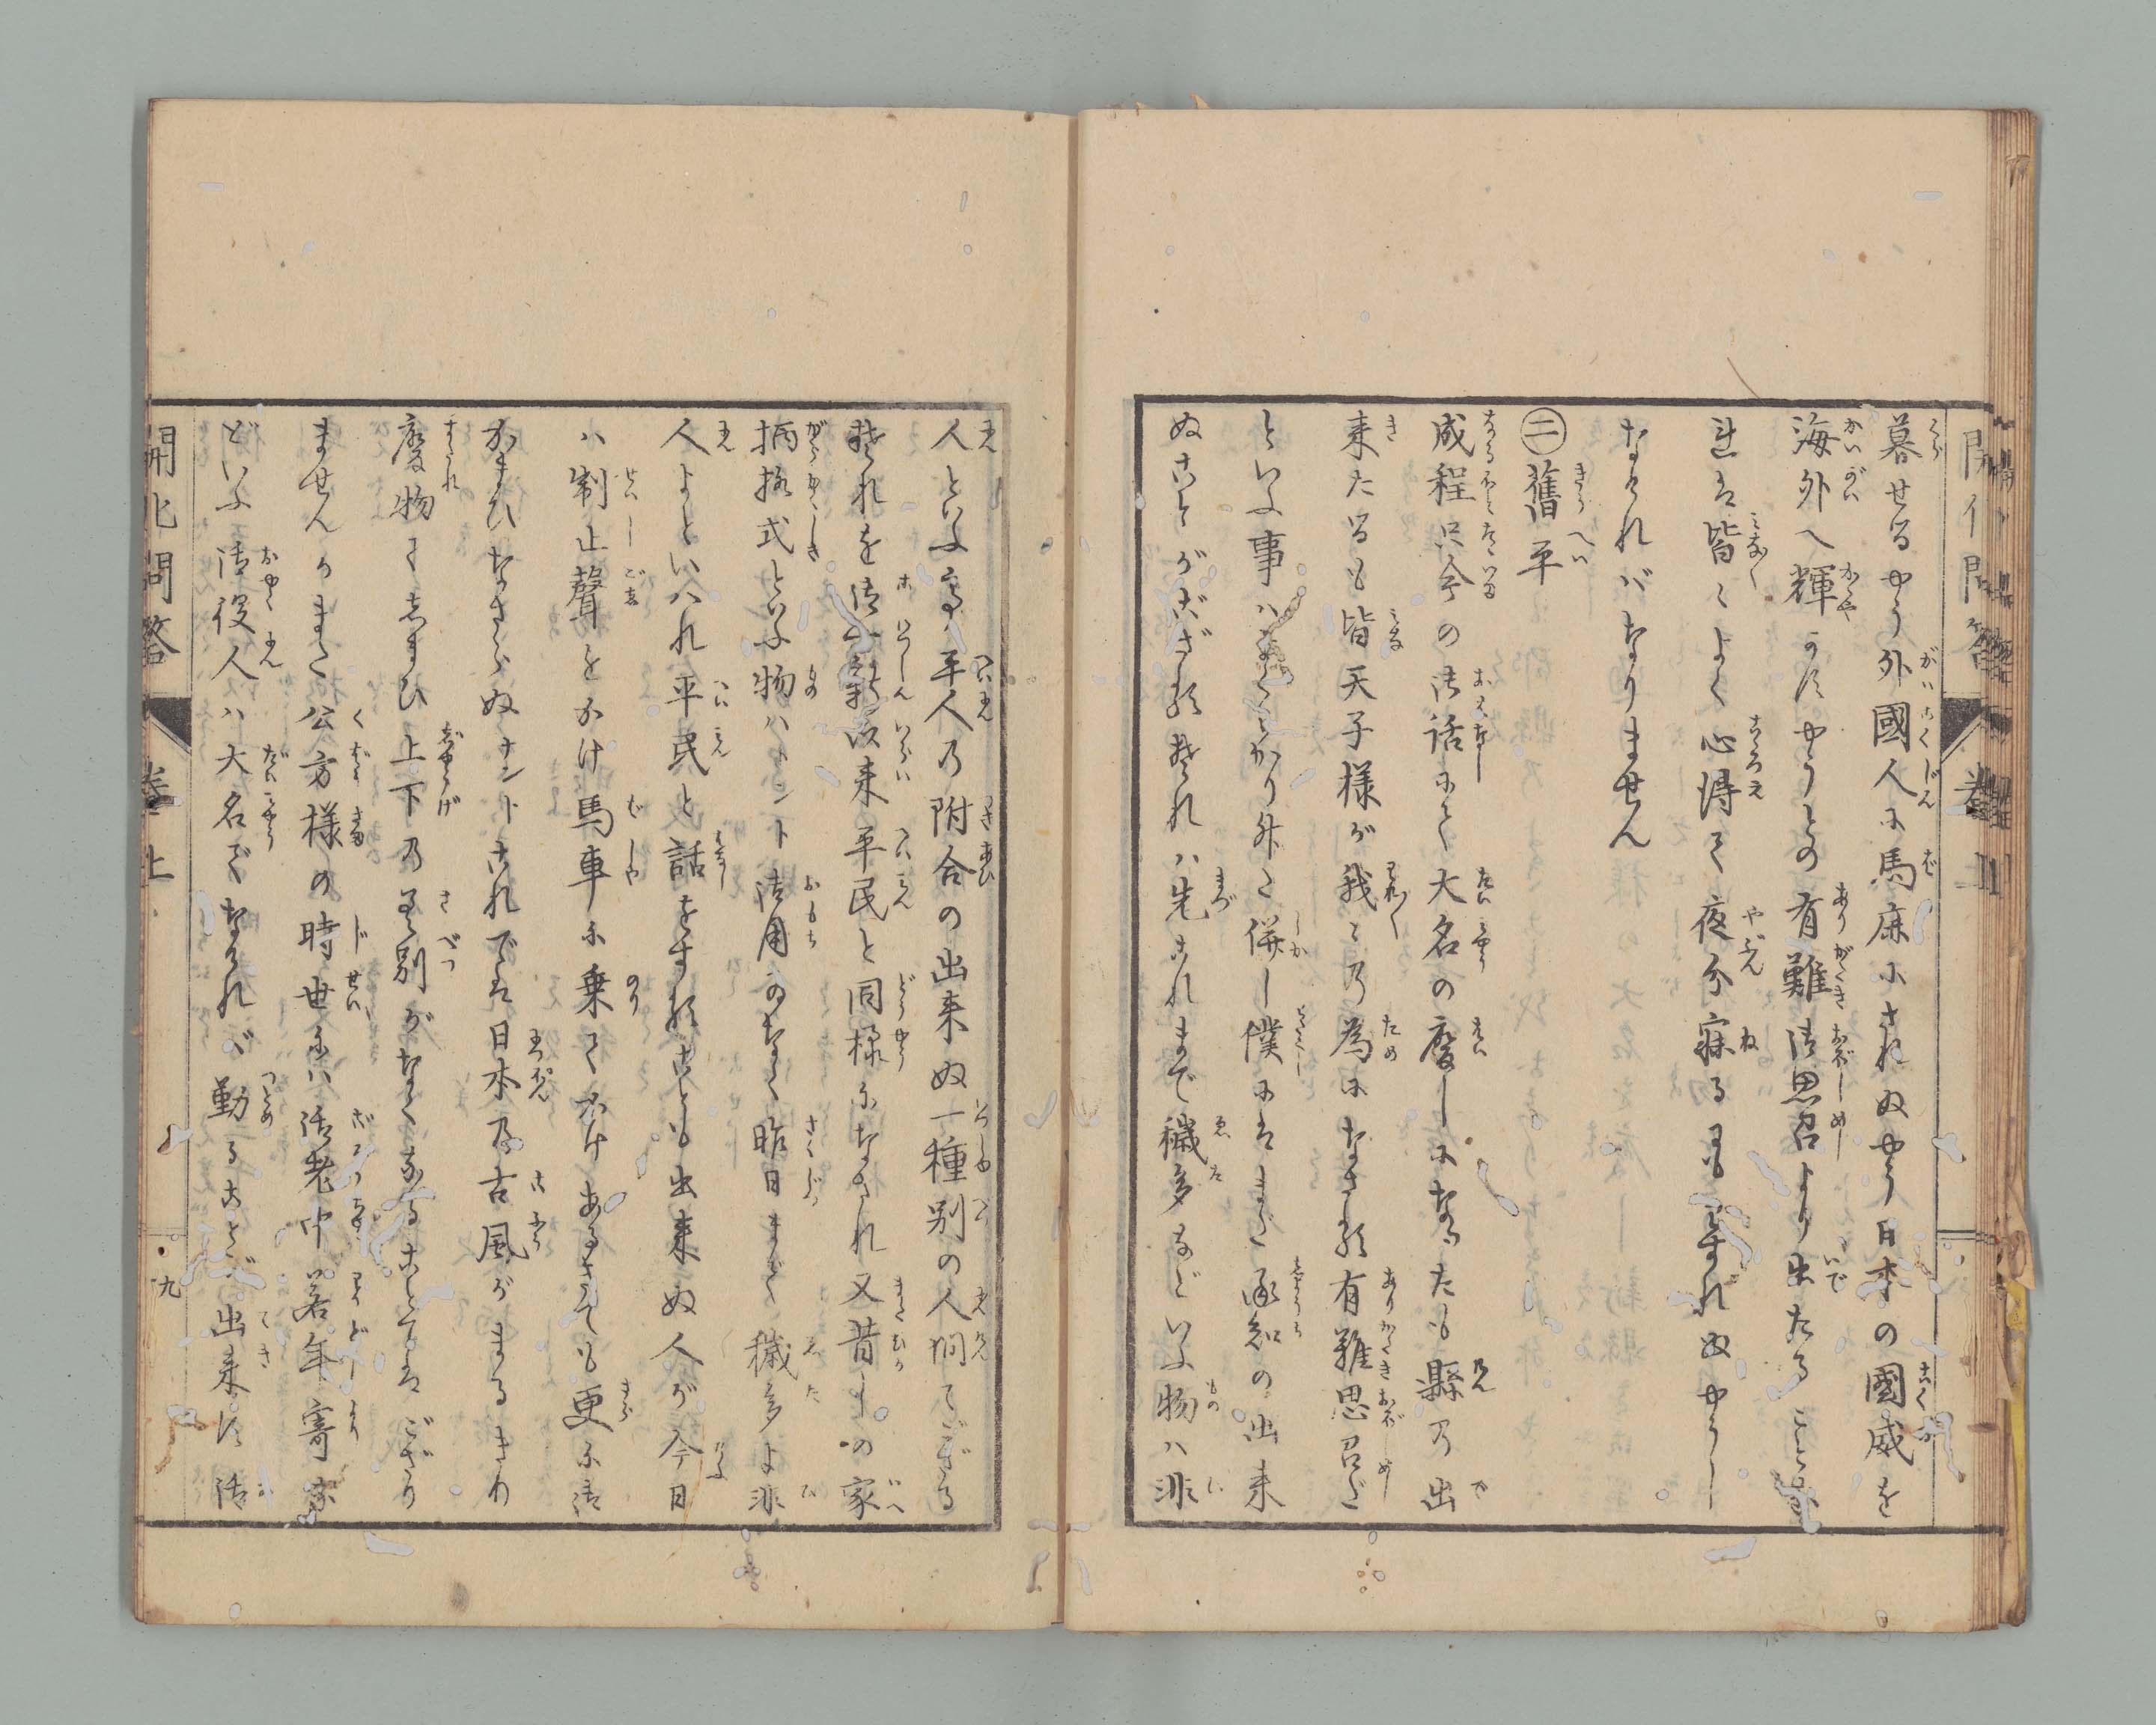 暮せるやう外國人に馬麻にされぬやう日本の國威を
海外へ輝かすやうとの有難御思召より出たること
是は皆々よく心得て夜分寐るにもわすれぬやうし
なければなりません
㊁舊平
成程只今の御話にて大名の廢しになつたも縣の出
来たるも皆天子様が我々の為になさる有難思召だ
といふ事はよくわかり升た併し僕にはまだ承知の出来
ぬことがござるそれは先これまで穢多などいふ物は非
人といふ
平人の附合の出来ぬ一種別の人間でござる
それを御一新以来平民と同様になされ又昔しの家
柄格式といふ物はトント御用ゐなく昨日まで穢多よ非
人よといはれ平民と話をすることも出来ぬ人が今日
は制止聲をかけ馬車に乗てかけあるきても更に御
かまひなさらぬナントこれでは日本の古風がまるきり
廢物てしまひ上下の差別がなくなることではござり
ませんかまた公方様の時世には御老中若年寄な
どいふ御役人は大名でなければ勤ることが出来ず御
開化問答
巻上
九